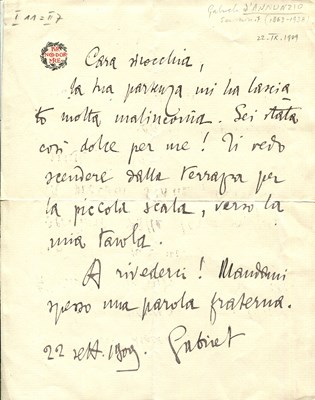 I 11 = II 7
Gabriele D'ANNUNZIO
(1863-1938)
22.IX.1909
PER
NON DOR
MIRE
Cara sirocchia,
la tua partenza mi ha lascia
to molta malinconia. Sei stata
così dolce per me! Ti vedo
scendere dalla terrazza per
la piccola scala, verso la
mia tavola.
A rivederci! Mandami
spesso una parola fraterna.
22 sett. 1909. Gabriel